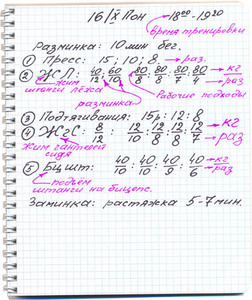 16/X Пон 18⁰⁰ - 19²⁰
Время тренировки
Разминка: 10 мин бег.
① Пресс: 15; 10; 8 → раз.
② ЖЛ: 40/12 60/10 80/8 80/8 80/7 80/8 → кг раз
Жим штанги лёжа
разминка
Рабочие подходы
③ Подтягивания: 15; 12; 8
④ ЖГС: 8/12 : 12/10 : 12/8 : 12/8 : 12/7 → кг раз
Жим гантелей сидя
⑤ БЦ шт: 40/10 : 40/10 : 40/9 : 40/6 → кг раз
подъём штанги на бицепс.
Заминка: растяжка 5-7 мин.